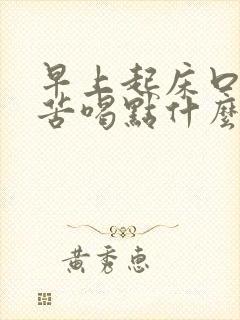 早上起床口
苦喝點什麼
黃秀惠